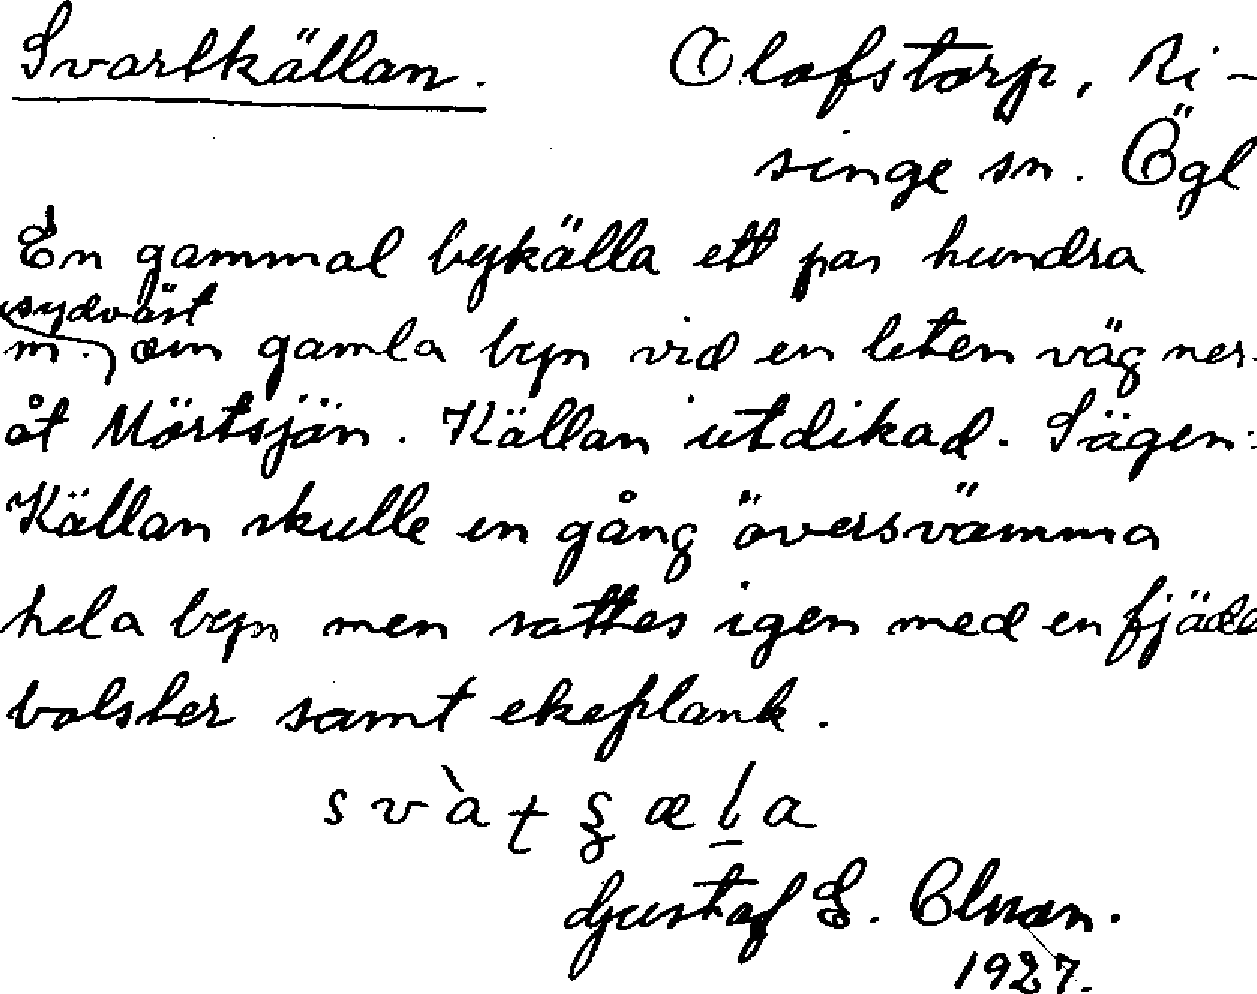 Svartkällan. Olofstorp, Ri-
singe sn. Ögl
En gammal bykälla ett par hundra
sydväst
m. om gamla byn vid en liten väg ner
åt Mörtsjön. Källan utdikad. Sägen:
Källan skulle en gång översvämma
hela byn men sattes igen med en fjäde
bolster samt ekeplank.
Gustaf E.
1927.